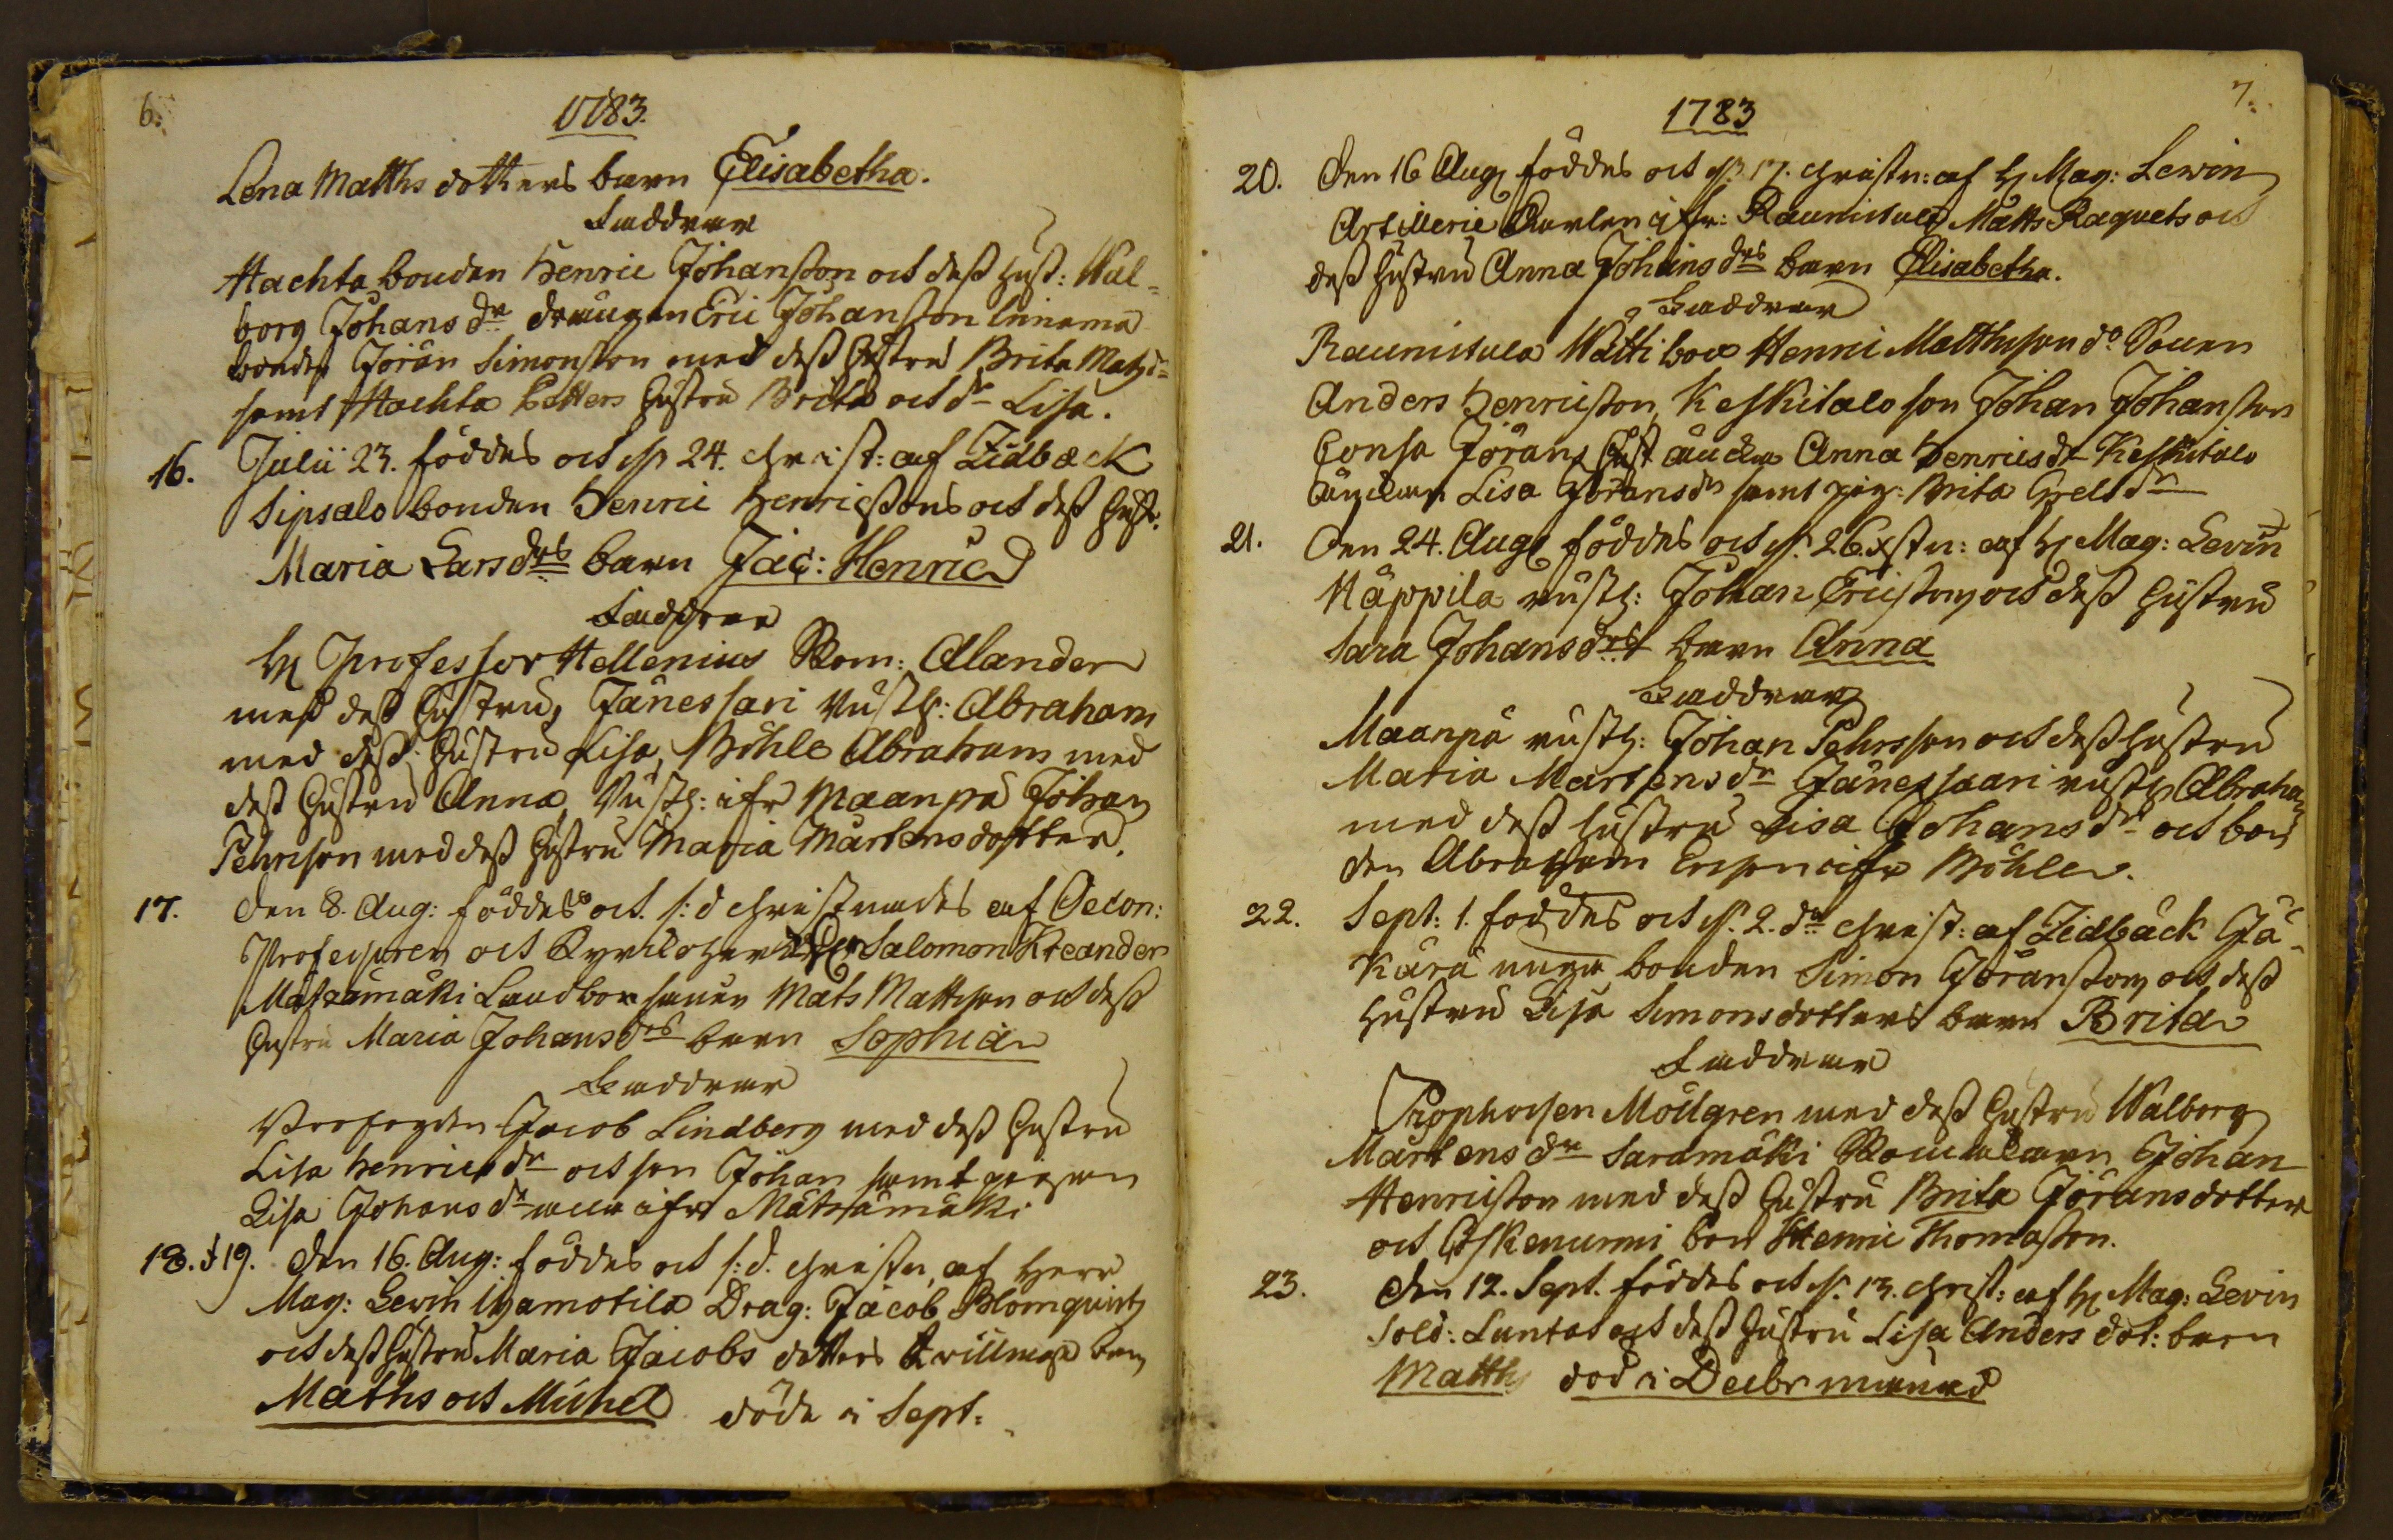 6.
1783.
Lena Matths dotters barn Elisabetha.
Faddrar
Hachta bonden Henric Johansson och dess hust: Wal-
borg Johans dr drängen Eric Johansson
bonden Jöran Simonsson med dess hustru Brita Matsd:
samt Hachta Petters hustru Brita och dr Lisa.
16. Julii 23. föddes och d 24. christ: af Zidbæck
Sipsalo bonden Henric Henricssons och dess hust:
Maria Larsdrs barn Jac: Henric
Faddrar
H Professor Hellenius Kom: Alander
med dess hustru, Jänessari rusth: Abraham
med dess hustru Lisa, Böhle Abraham med
dess hustru Anna, rusth: ifr Maanpä Johan
Pehrsson med dess hustru Maria Mårtensdotter.
17. den 8. Aug: föddes och s: d christnades af Oecon:
Professoren och Kyrckoherd Salomon Kreander
Matsamäki Landbon sonen Mats Mattsson och dess
hustru Maria Johansdrs barn Sophia
Faddrar
Jacob Lindberg med dess hustru
Lisa Henrics dr och son Johan samt pigan
Lisa Johans dr alla ifr Mätsämäki
18. & 19. den 16. Aug: föddes och s: d. christn, af Herr
Mag: Levin Drag: Jacob Blomquist
och dess hustru Maria Jacobs dotters tvillingar barn
Maths och Michel döde i Sept:
7.
1783
20. Den 16 Aug föddes och d. 17. christn: af H Mag: Lewin
Artillerie Karlen ifr: Raunistula Matts Raquets och
dess hustru Anna Johans drs barn Elisabetha.
Faddrar
Raunistula Wätti bon Henric Matthsson do Sonen
Anders Henricsson, Keskitalo son Johan Johansson
Consa Jörans hust änckan Anna Henricsdr Keskitalo
Lisa Jöransdr samt pig: Brita Grels dr
21. Den 24. Aug föddes och d. 26. xstn: af H Mag: Levin
Käppila rusth: Johan Ericsson och dess hustru
Sara Johansdrs barn Anna
Faddrar
Maanpä rusth: Johan Pehrsson och dess hustru
Maria Martens dr Jänessaari rusth Abraham
med dess hustru Lisa Johans dr och bon
den Abraham Ersson ifr Böhle.
22. Sept: 1. föddes och d. 2. do christ: af Zidbäck Jä-
kärä bonden Simon Jöransson och dess
hustru Lisa Simonsdotters barn Brita
Faddrar
Prophossen Möllgren med dess hustru Walborg
Mårtens dr Saramäki Johan
Henricsson med dess hustru Brita Jöransdotter
och Koskenurmi bon Henric Thomasson.
23. Den 12. Sept. föddes och d. 13. christ: af H Mag: Levin
Sold: Luntas och dess hustru Lisa Anders dot: barn
Matths död i Decbr månad